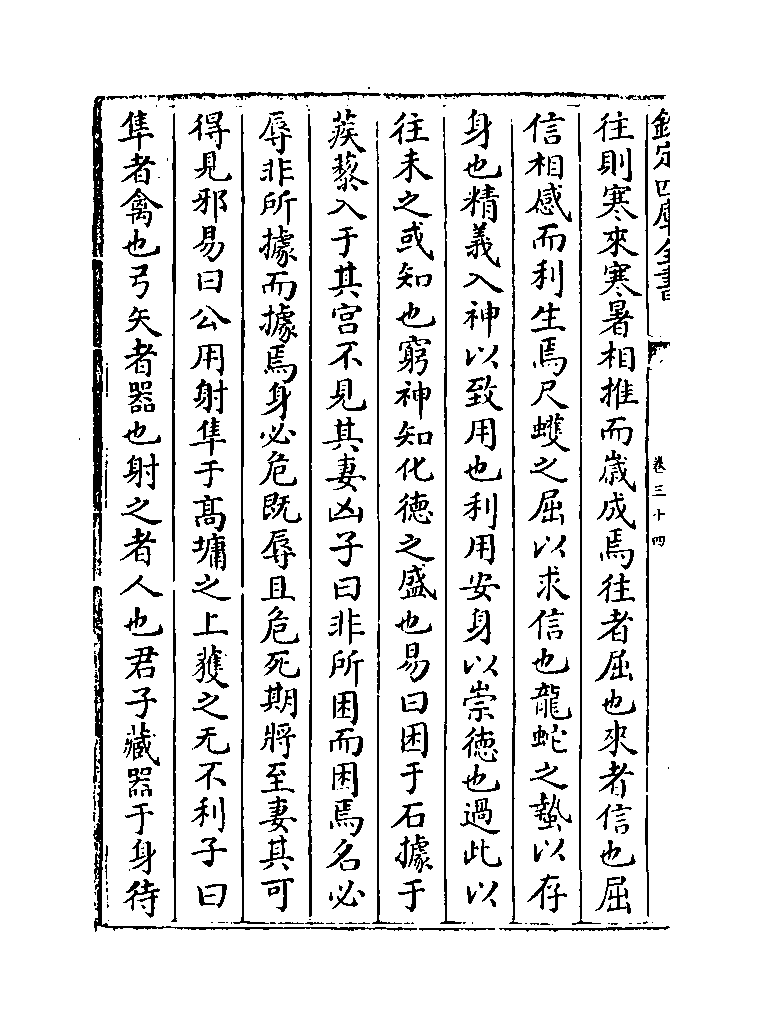 欽定四庫全書
卷三十四
往則寒來寒暑相推而嵗成焉往者屈也來者信也屈
信相感而利生焉尺蠖之屈以求信也龍蛇之蟄以存
身也精義入神以致用也利用安身以崇徳也過此以
往未之或知也窮神知化德之盛也易曰困于石據于
蒺藜入于其宫不見其妻凶子曰非所困而困焉名必
辱非所據而據焉身必危既辱且危死期將至妻其可
得見邪易曰公用射隼于髙墉之上獲之无不利子曰
隼者禽也弓矢者器也射之者人也君子藏器于身待